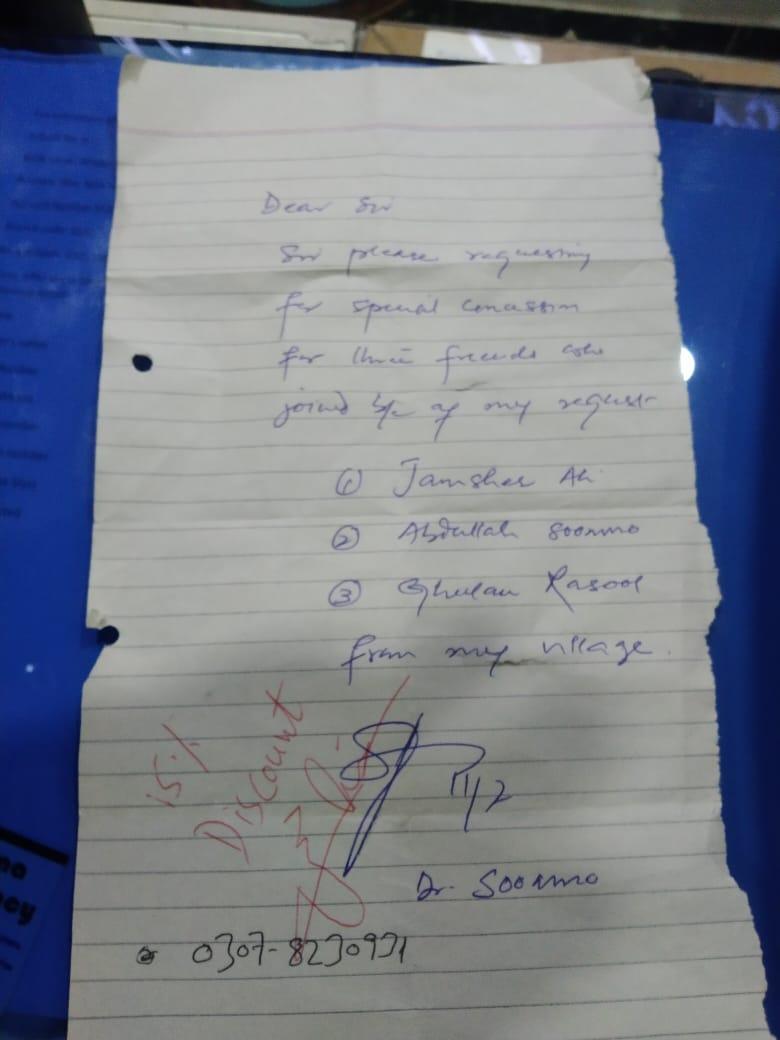 Dear Sir
Sir please requesting
for special concession
for three friends who
joined b/c of my request
① Jamsher Ali
② Abdullah Soomro
③ Ghulam Rasool
from my village.
15%
Discount
11/2
Dr. Soomro
0307-8230931